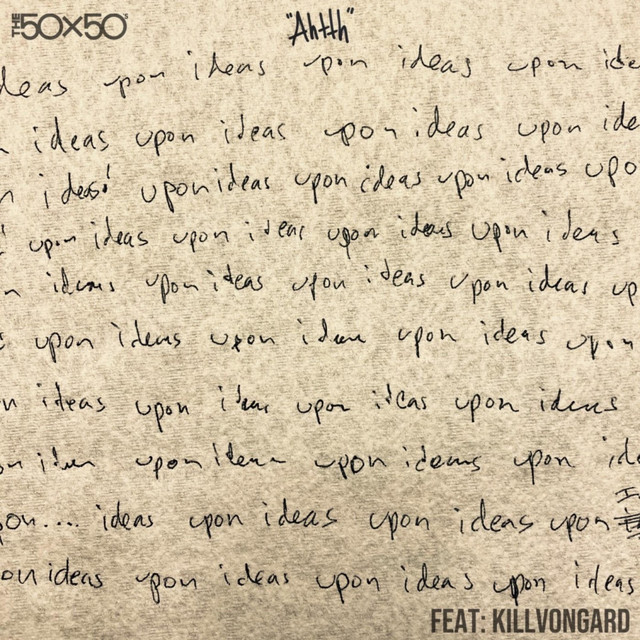 THE 50X50
"Ahtth"
deas upon ideas upon ideas upon ide
n ideas upon ideas upon ideas upon ide
n ideas! upon ideas upon ideas upon ideas upo
upon ideas upon ideas upon ideas upon ideas
n ideas upon ideas upon ideas upon ideas up
upon ideas upon ideas upon ideas upon
n ideas upon ideas upon ideas upon ideas
on ideas upon ideas upon ideas upon ide
pon.... ideas upon ideas upon ideas upon
on ideas upon ideas upon ideas upon ideas
FEAT: KILLVONGARD